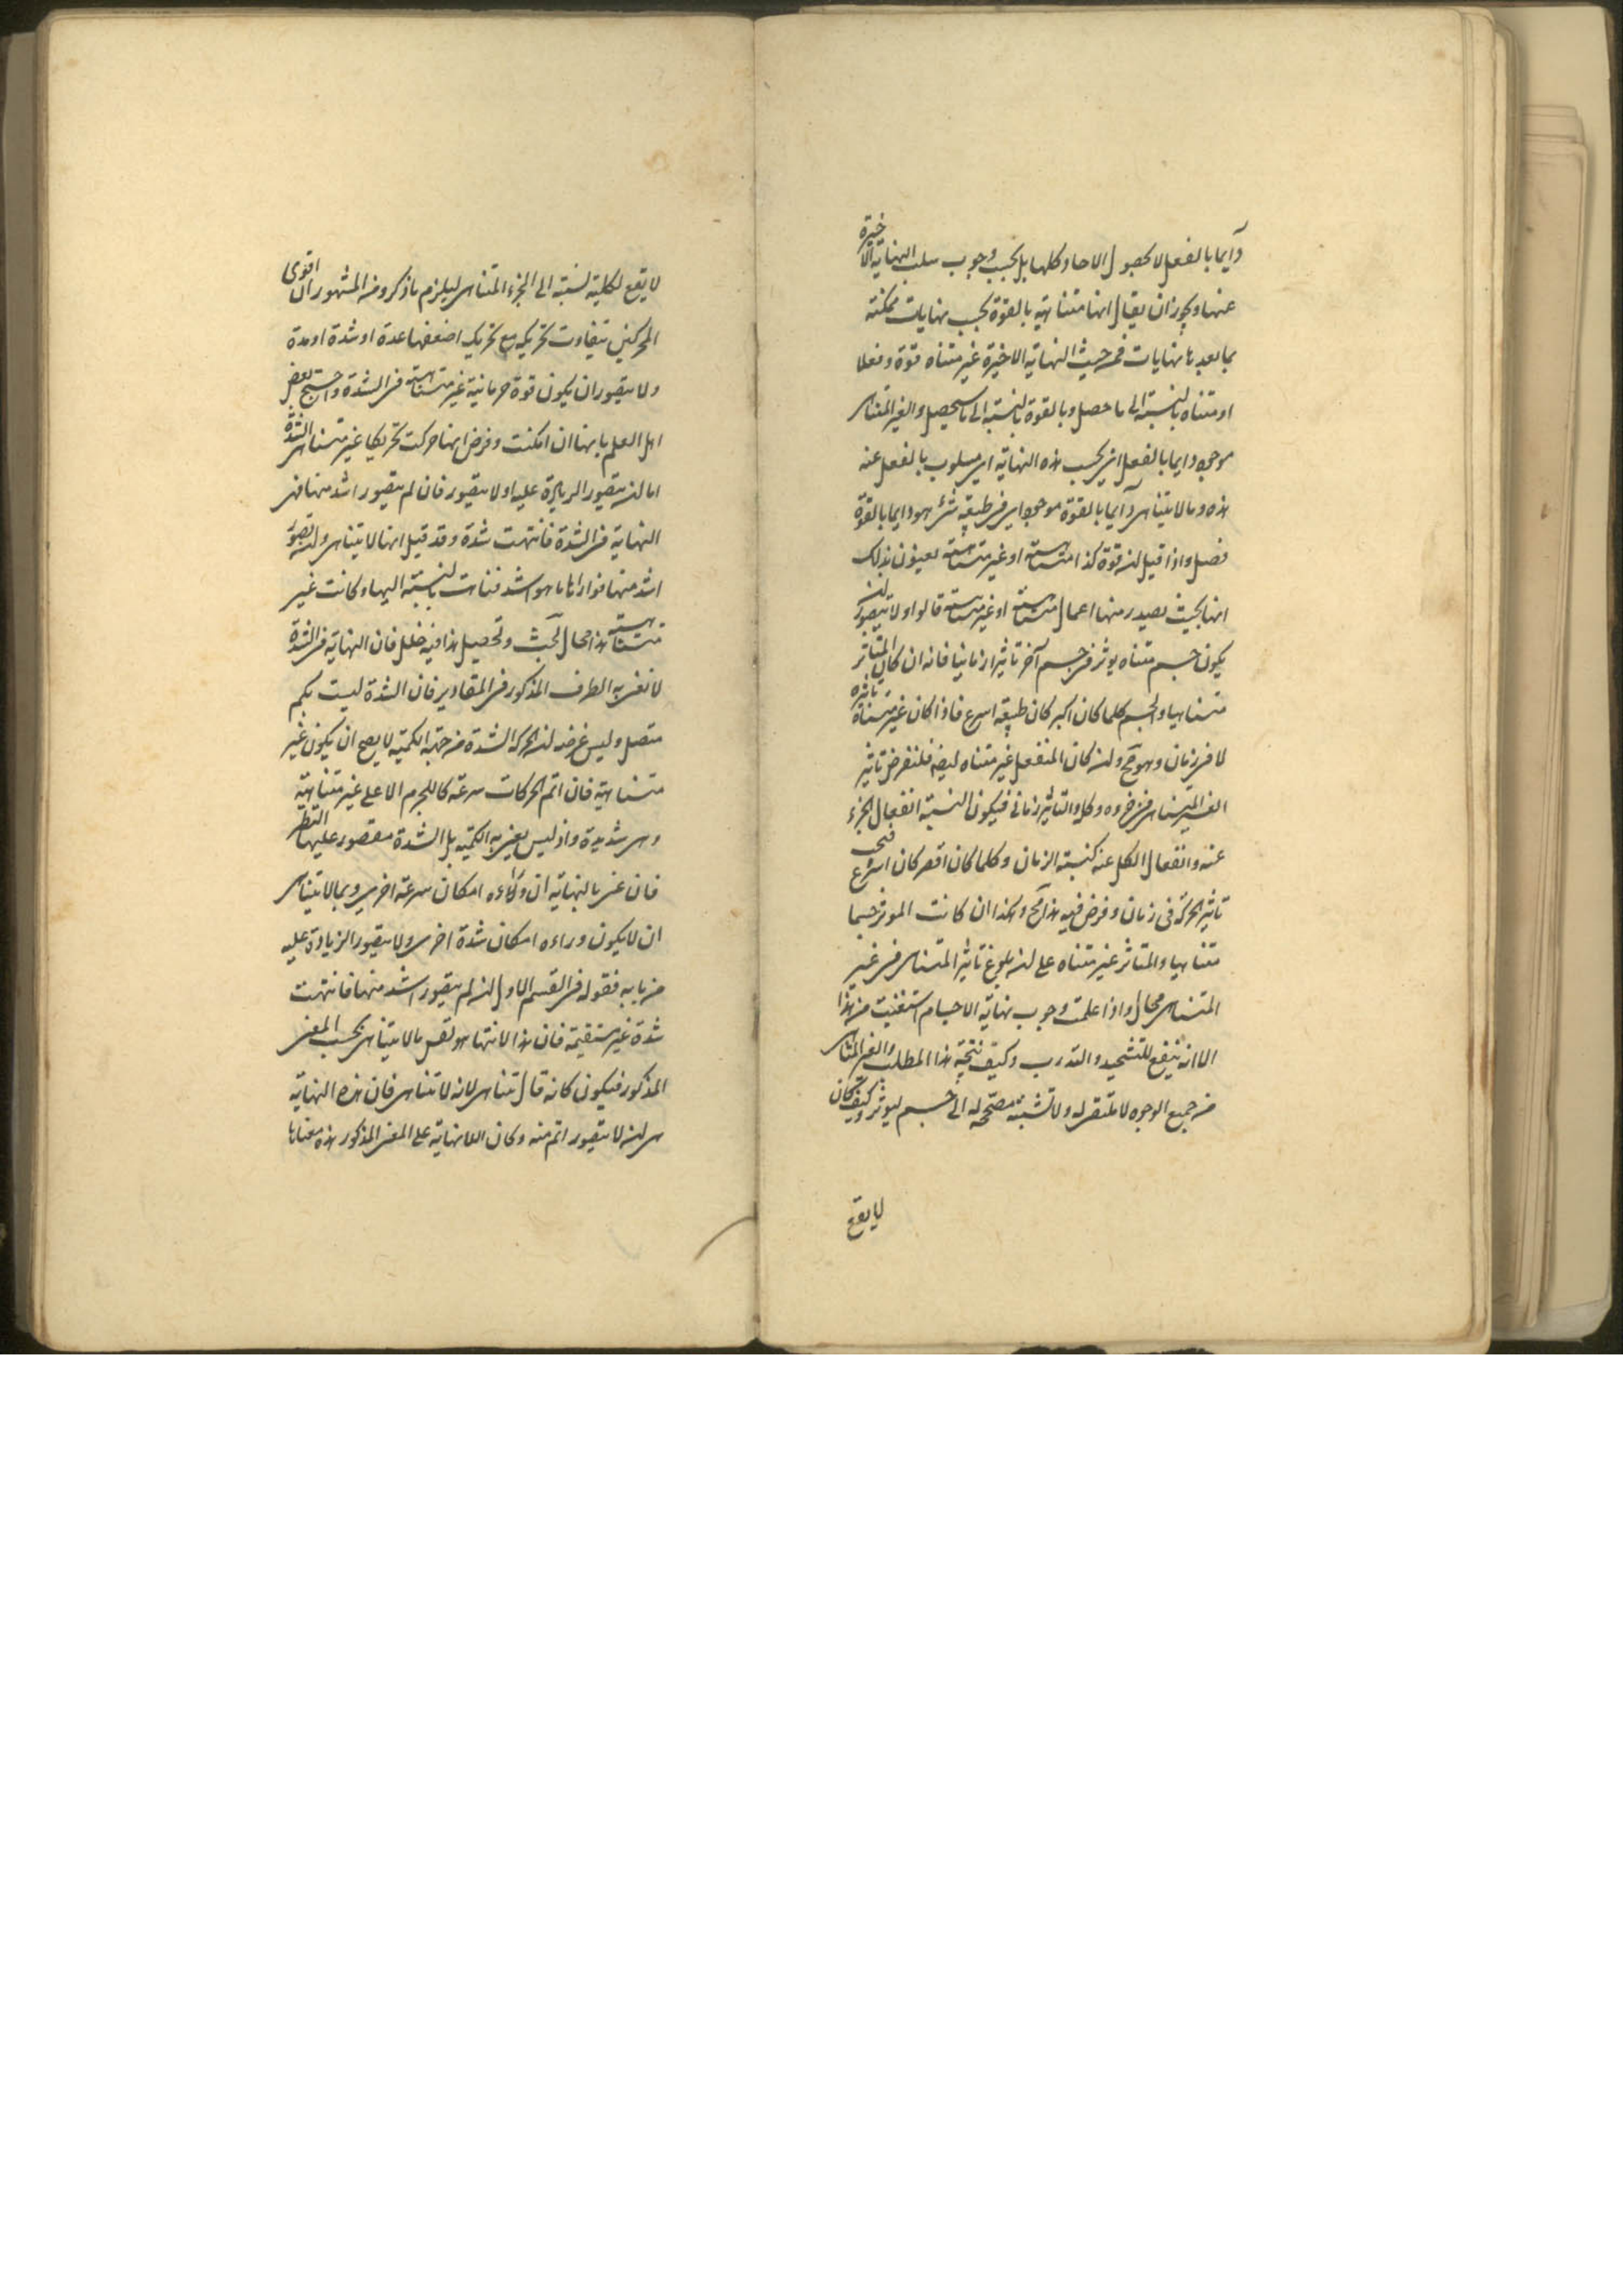 دايما بالفعل لا بحصول الاحاد كلها بل بحسب وجوب سلب النهاية الاخيرة
عنها ويجوز ان يقال انها متناهية بالقوة بحسب نهايات ممكنة
بما بعدها نهايات فمن حيث النهاية الاخيرة غير متناه قوة وفعلا
او متناه بالنسبة الى ما حصل وبالقوة بالنسبة الى ما سيحصل والغير المتناهى
موجود دايما بالفعل اى بحسب هذه النهاية اى مسلوب بالفعل عنه
هذه وما لا يتناهى دايما بالقوة موجود اى فى طبيعة شئ هو دايما بالقوة
فصل واذا قيل ان قوة كذا متناهية او غير متناهية يعنون بذلك
انها بحيث يصدر منها اعمال متناهية او غير متناهية قالوا ولا يتصور ان
يكون جسم متناه يوثر فى جسم آخر تاثيرا زمانيا فانه ان كان المتاثر
متناهيا والجسم كلما كان اكبر كان طبيعة اسرع فاذا كان غير متناه تاثيره
لا فى زمان وهو مح وان كان المنفعل غير متناه ايضا فلنفرض تاثير
الغير المتناهى فى جزوه وكل والتاثير زمانى فيكون نسبة انفعال الجزء
عنه وانفعال الكل عنه كنسبة الزمان وكلما كان اقصر كان اسرع فحى
تاثير الحركة فى زمان وفرض فيه هذا مح وهكذا ان كانت الموثر جسما
متناهيا والمتاثر غير متناه على ان بلوغ تاثير المتناهى فى غير
المتناهى محال واذا علمت وجوب نهاية الاجسام استغنيت من هذا
الا انه ينفع للتشحيذ والتدرب وكيف نتيجة هذا المطلب والغير المتناهى
من جميع الوجوه لا ولا نسبة مصححة له الى جسم ليوثر وكيف كان
لا يقع
لا يقع لكلية نسبة الى الجزء المتناهى ليلزم ما ذكر ومن المشهور ان اقوى
المحركين يتفاوت تحريكه مع تحريك اضعفها عدة او شدة او مدة
ولا يتصور ان يكون قوة جرمانية غير متناهية فى الشدة واحتج بعض
اهل العلم بانها ان امكنت وفرض انها حركت تحريكا غير متناهى الشدة
اما ان يتصور الزيادة عليه او لا يتصور فان لم يتصور اشد منها فهى
النهاية فى الشدة فانتهت شدة وقد قيل انها لا يتناهى وان تصور
اشد منها فوراءها ما هو اشد فتناهت بالنسبة اليها وكانت غير
متناهية هذا محال بحث وتحصيل هذا فيه خلل فان النهاية فى الشدة
لا نعنى به الطرف المذكور فى المقادير فان الشدة ليست بكم
متصل وليس غرضه ان الحركة الشدة من جهة الكمية لا يصح ان يكون غير
متناهية فان اتم الحركات سرعة كما للجرم الاعلى غير متناهية
وهى شديدة واذ ليس يعنى به الكمية بل الشدة مقصور عليها النظر
فان عنى بالنهاية ان وراءه امكان سرعة اخرى وبما لا يتناهى
ان لا يكون وراءه امكان شدة اخرى ولا يتصور الزيادة عليه
من بابه فقوله فى القسم الاول ان لم يتصور اشد منها فانتهت
شدة غير مستقيمة فان هذا الانتها هو نفس ما لا يتناهى بحسب المعنى
المذكور فيكون كانه قال تناهى لانه لا تناهى فان هذه النهاية
هى ان لا يتصور اتم منه وكان اللا نهاية على المعنى المذكور هذه معناها